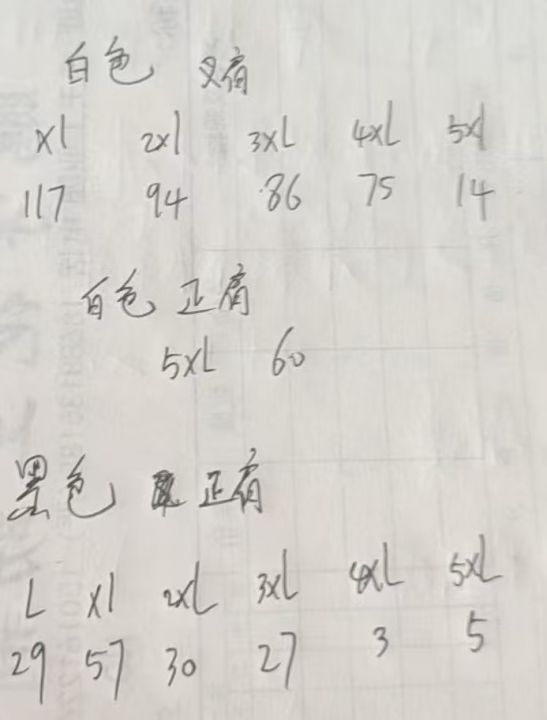 白色 叉肩
xl 2xl 3xL 4xL 5xl
117 94 86 75 14
白色 正肩
5xL 60
黑色 正肩
L xl 2xL 3xL 4xL 5xL
29 57 30 27 3 5